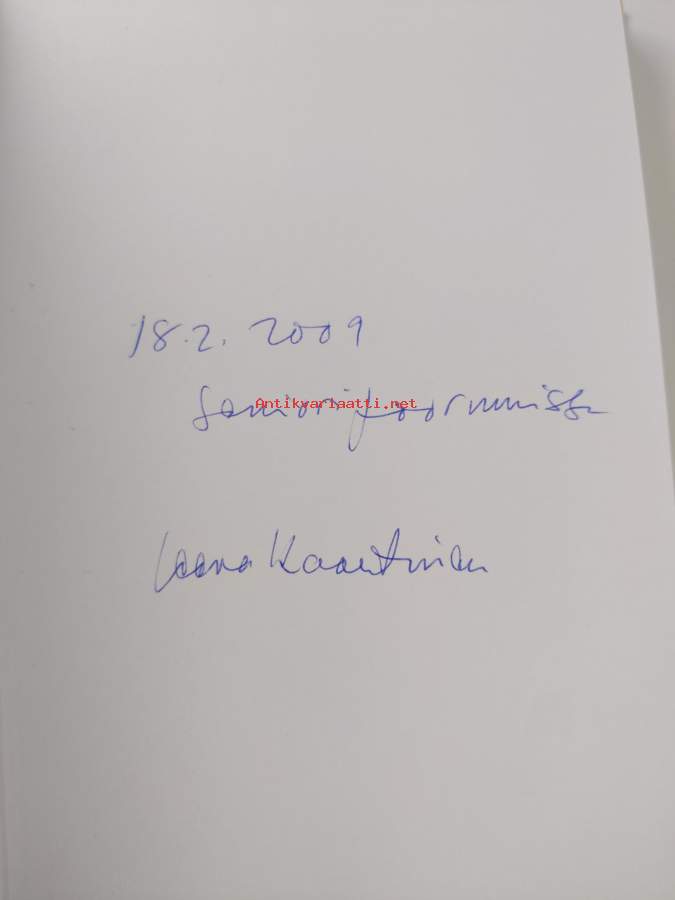 18.2. 2009
Seniorifoorumissa
Antikvariaatti.net
Leena Kaartinen